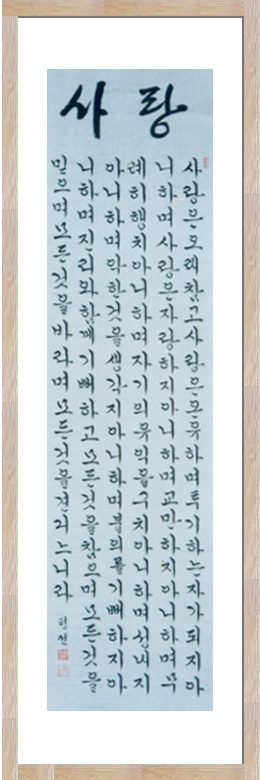 사랑
사랑은오래참고사랑은온유하며투기하는자가되지아
니하며사랑은자랑하지아니하며교만하지아니하며무
례히행치아니하며자기의유익을구치아니하며성내지
아니하며악한것을생각지아니하며불의를기뻐하지아
니하며진리와함께기뻐하고모든것을참으며모든것을
믿으며모든것을바라며모든것을견디느니라